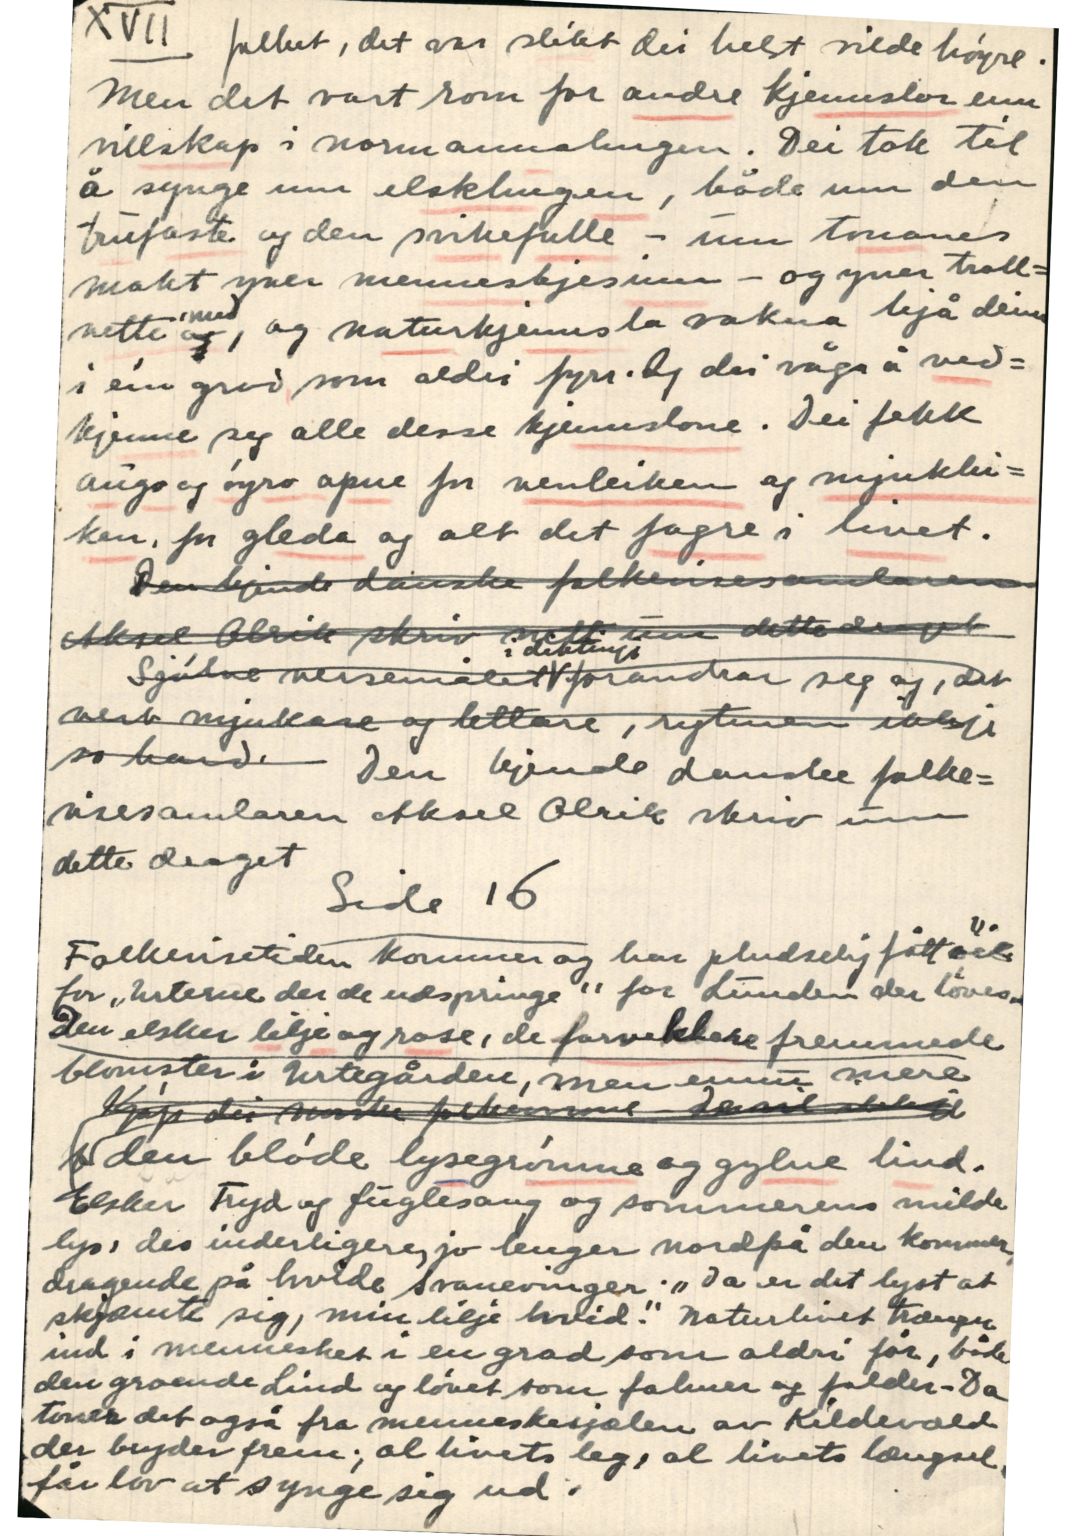 XVII
folket, det var slikt dei helst vilde høyre.
Men det vart rom for andre kjennslor enn
villskap i normannahugen. Dei tok til
å synge um elskhugen, både um den
trufaste og den svikefulle – um tonanes
makt yver menneskjesinn – og yver troll=
vette med, og naturkjennsla vakna hjå deim
i ein grad som aldri fyrr. Og dei våga å ved=
kjenne seg alle desse kjennslone. Dei fekk
augo og øyro opne for venleiken og mjuklei=
ken, for gleda og alt det fagre i livet.
Den kjende danske folkevisesamlaren
Aksel Olrik skriv nett um dette draget
i diktingi
Sjølve versemålet forandrar seg og, det
vert mjukare og lettare, rytmen ikkje
so hard. Den kjende danske folke=
visesamlaren Aksel Olrik skriv um
dette draget
Side 16
Folkevisetiden kommer og har pludselig fått øie
for „Urterne der de udspringe" for Lunden der løves.
Den elsker lilje og rose, de farveklare fremmede
blomster i Urtegården, men ennu mere
Hjå dei norske folkeminne
den bløde lysegrønne og gylne lind.
Elsker Fryd og fuglesang og sommerens milde
lys, des inderligere, jo lenger nordpå den kommer,
dragende på hvide svanevinger. „Da er det lyst at
skjæmte sig, min lilje hvid." Naturlivet trænger
ind i mennesket i en grad som aldri før, både
den groende Lind og løvet som falmer og falder – Da
toner det også fra menneskesjælen av Kildevæld
der bryder frem; al livets leg, al livets længsel,
får lov at synge sig ud.